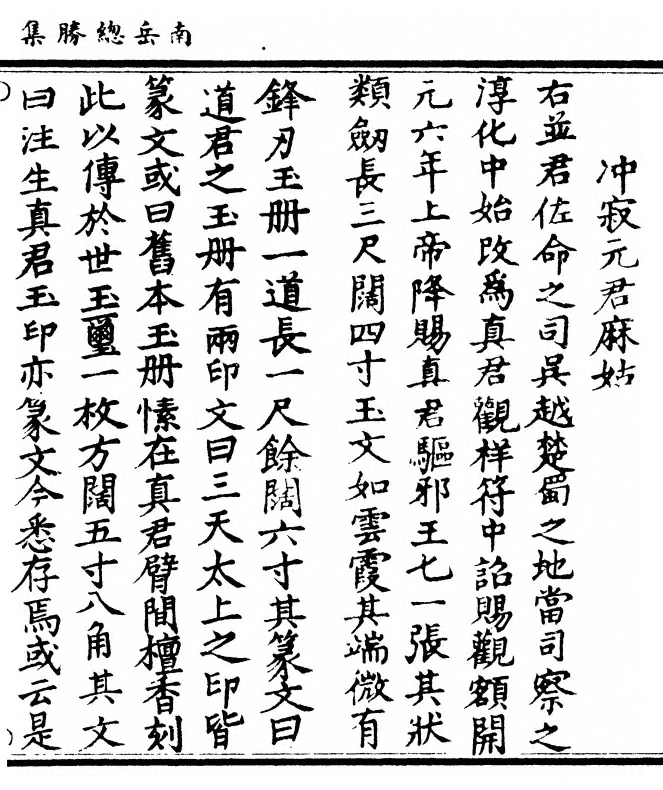 南岳總勝集
冲寂元君麻姑
右並君佐命之司吳越楚蜀之地當司察之
淳化中始改爲真君觀祥符中詔賜觀額開
元六年上帝降賜真君驅邪王七一張其狀
類劒長三尺闊四寸玉文如雲霞其端微有
鋒刃玉册一道長一尺餘闊六寸其篆文曰
道君之玉册有兩印文曰三天太上之印皆
篆文或曰舊本玉册愫在真君臂間檀香刻
此以傳於世玉璽一枚方闊五寸八角其文
曰注生真君玉印亦篆文今悉存焉或云是